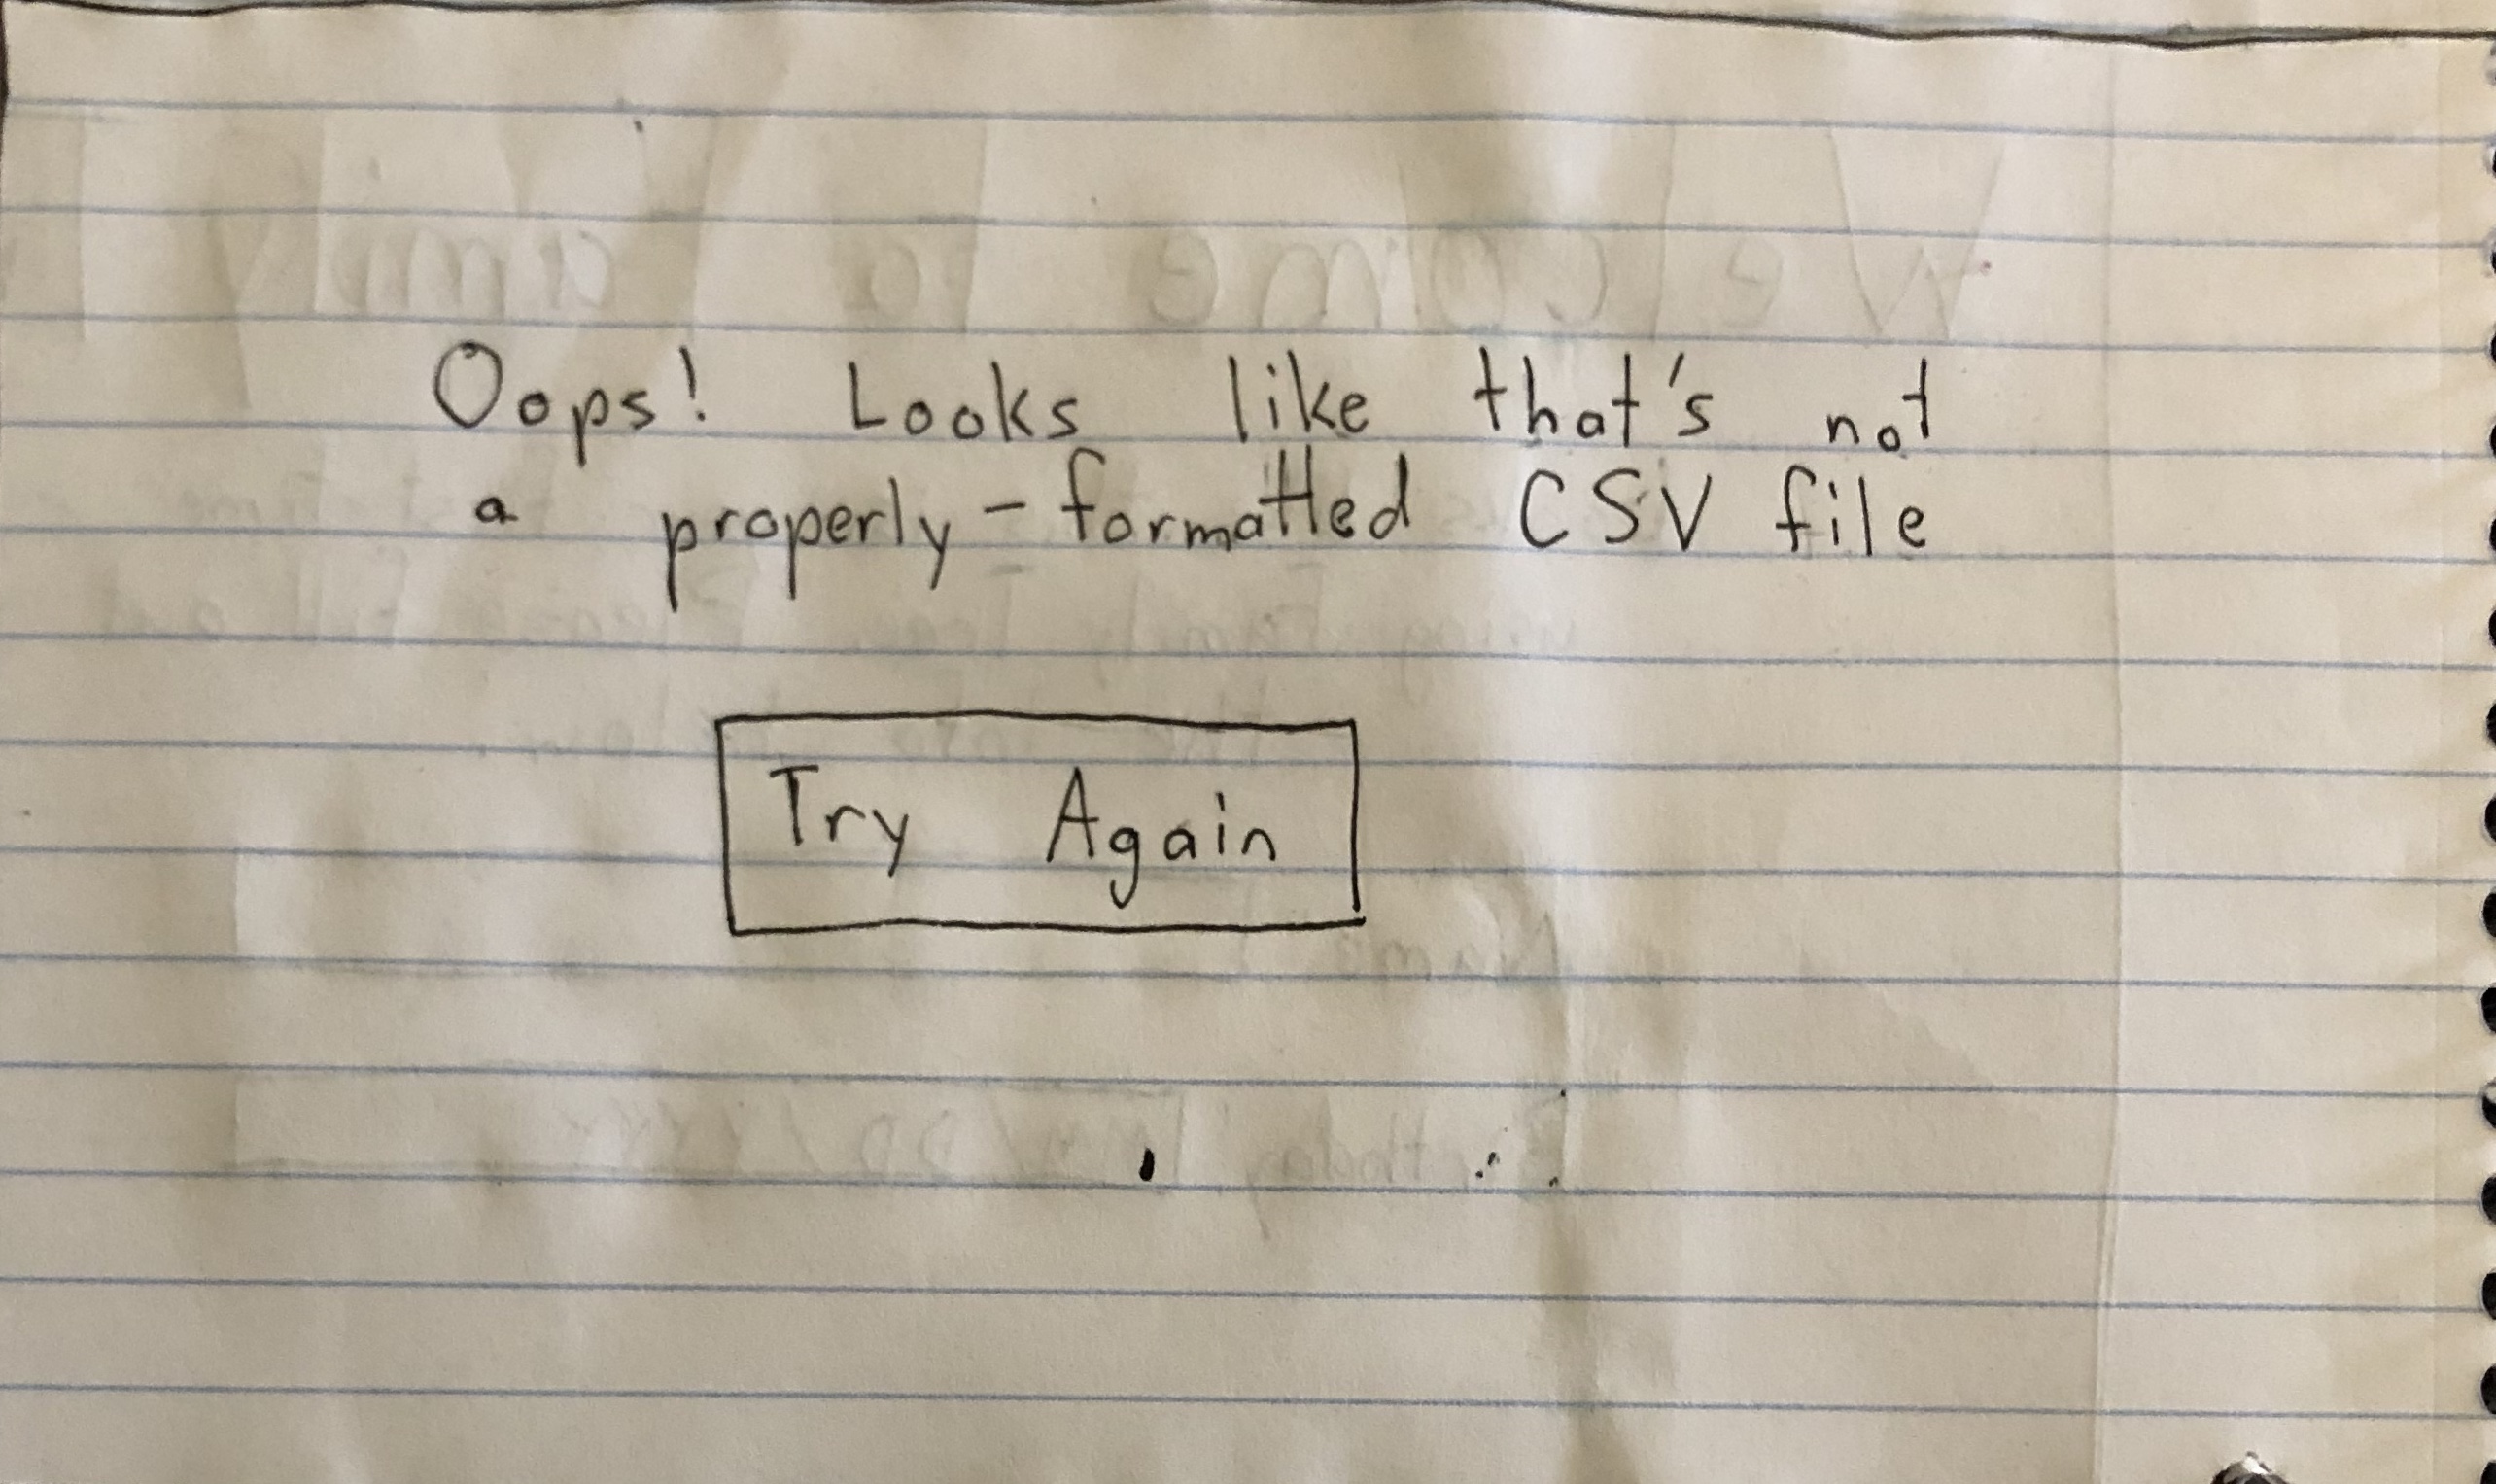 Oops! Looks like that's not
a properly-formatted CSV file
Try Again